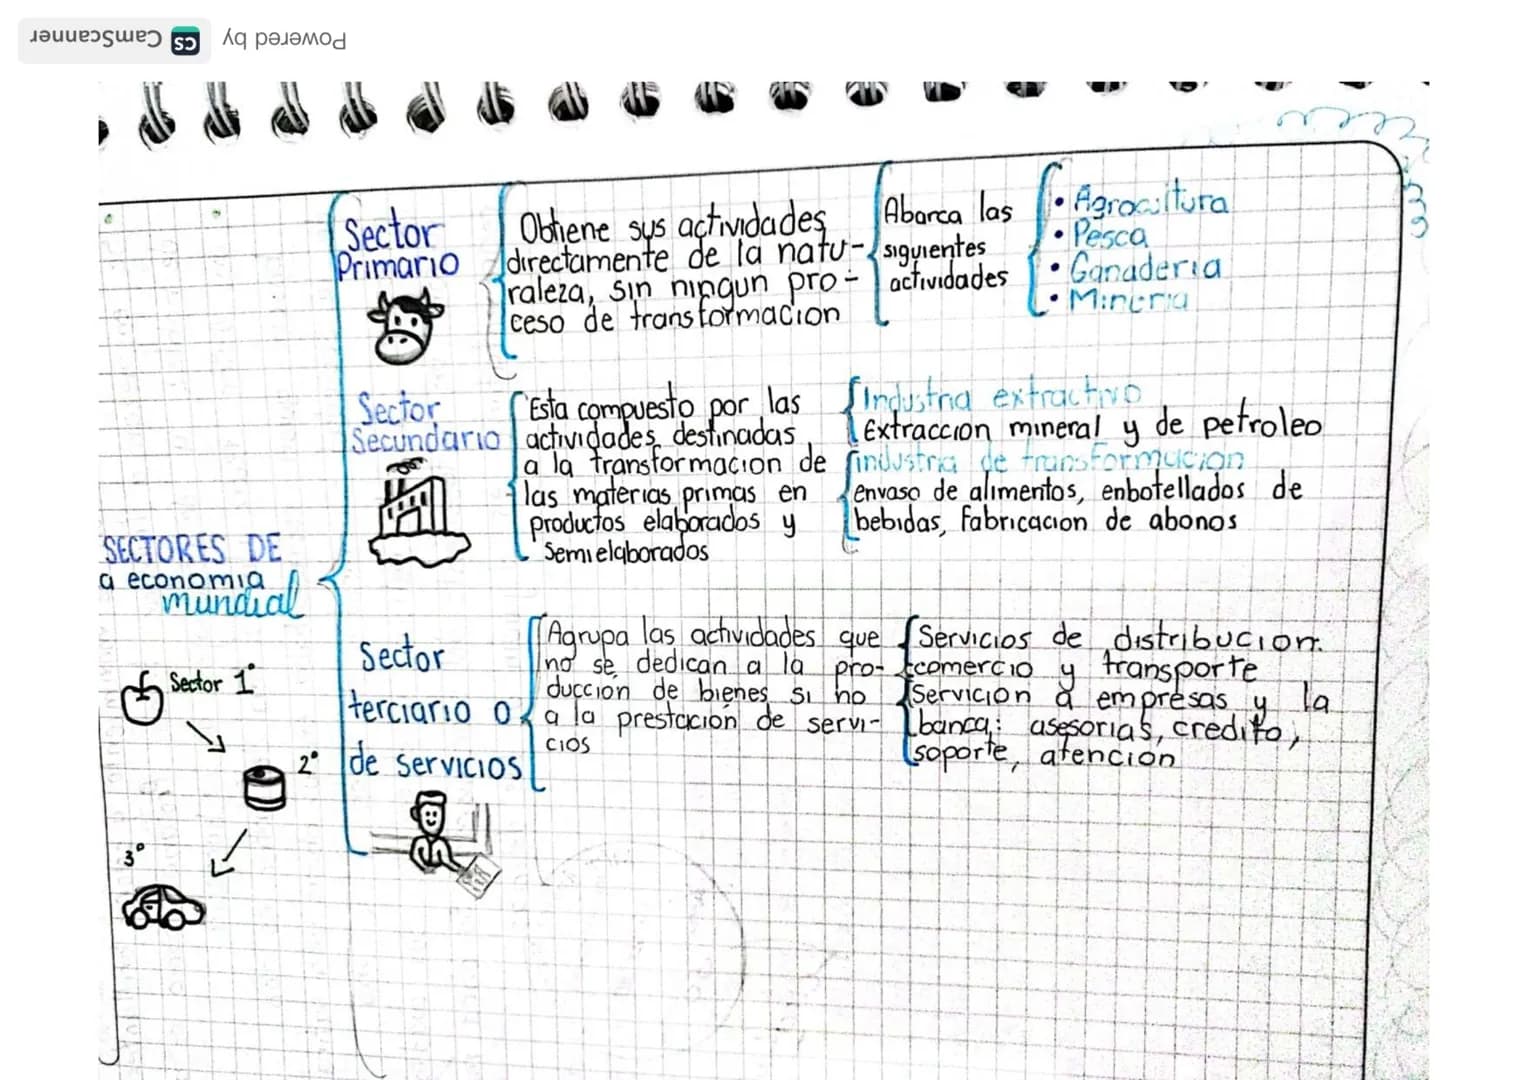 Powered by CS CamScanner
Sector
Primario
Obtiene sus actividades
directamente de la natu-
raleza, sin ningun pro-
ceso de transformacion
Abarca las
siguientes
actividades
• Agrocultura
• Pesca
• Ganaderia
• Mineria
Sector
Secundario
Esta compuesto por las
actividades destinadas
a la transformacion de
las materias primas en
productos elaborados y
Semielaborados
Industria extractivo
Extraccion mineral y de petroleo
industria de transformacion
envaso de alimentos, enbotellados de
bebidas, fabricacion de abonos
SECTORES DE
a economia
mundial
Sector
terciario o
de servicios
Agrupa las actividades que
no se dedican a la pro-
ducción de bienes si no
a la prestación de servi-
cios
Servicios de distribucion.
comercio y transporte
Servicion a empresas y la
banca: asesorias, credito,
soporte, atencion
Sector 1°
2°
3°